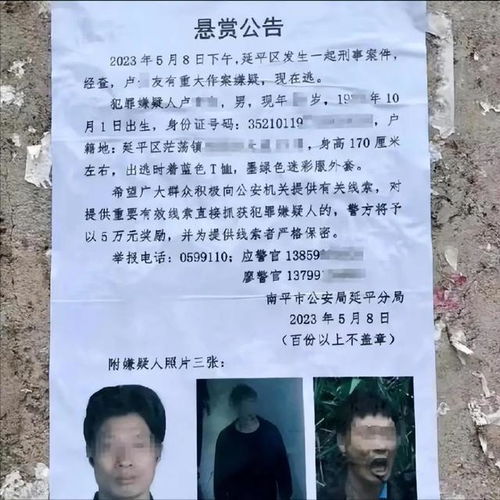 悬赏公告
2023年5月8日下午,延平区发生一起刑事案件,
经查,卢 友有重大作案嫌疑,现在逃。
犯罪嫌疑人卢 ,男,现年 岁,19 年10
月1日出生,身份证号码:35210119 ,户
籍地:延平区茫荡镇 ,身高170厘米
左右,出逃时着蓝色T恤,墨绿色迷彩服外套。
希望广大群众积极向公安机关提供有关线索,对
提供重要有效线索直接抓获犯罪嫌疑人的,警方将予
以5万元奖励,并为提供线索者严格保密。
举报电话:0599110;应警官13859
廖警官13799
南平市公安局延平分局
2023年5月8日
(百份以上不盖章)
附嫌疑人照片三张: